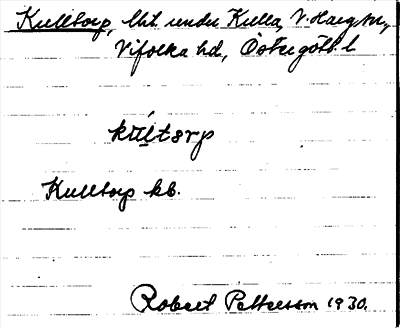 Kulltorp, lht under Kulla, V. Harg sn,
Vifolka hd, Östergötl. l
Kulltorp kb.
Robert Pettersson 1930.